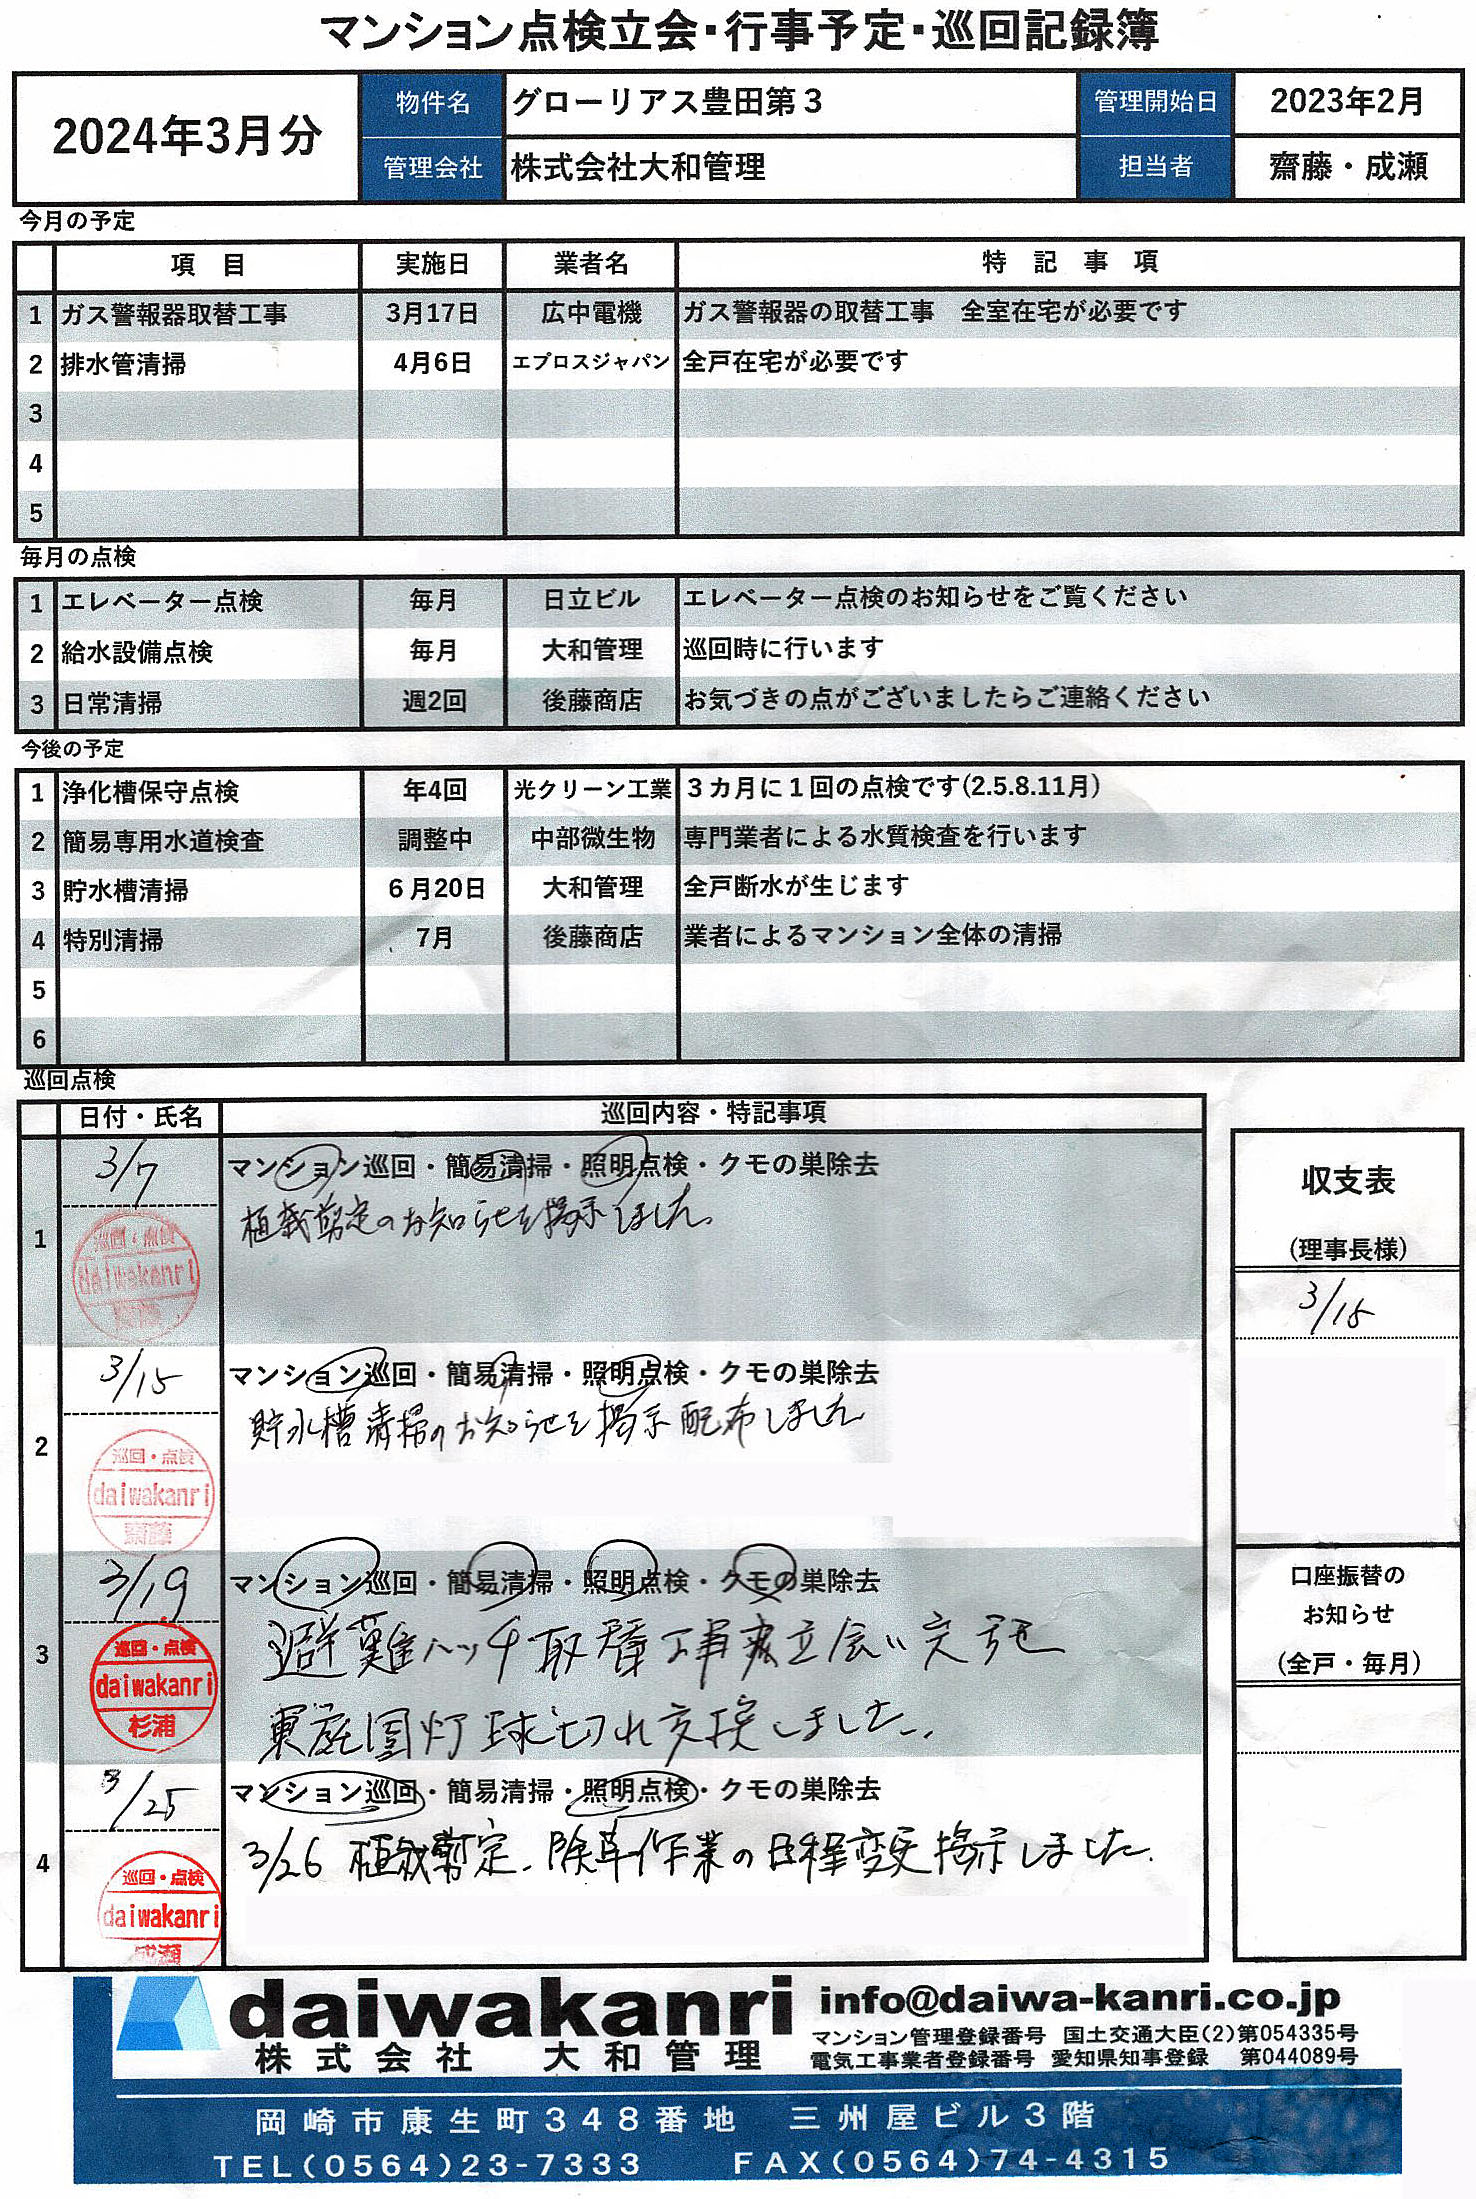 マンション点検立会・行事予定・巡回記録簿
2024年3月分 物件名 グローリアス豊田第3 管理開始日 2023年2月
管理会社 株式会社大和管理 担当者 齋藤・成瀬
今月の予定
項 目 実施日 業者名 特 記 事 項
1 ガス警報器取替工事 3月17日 広中電機 ガス警報器の取替工事 全室在宅が必要です
2 排水管清掃 4月6日 エプロスジャパン 全戸在宅が必要です
3
4
5
毎月の点検
1 エレベーター点検 毎月 日立ビル エレベーター点検のお知らせをご覧ください
2 給水設備点検 毎月 大和管理 巡回時に行います
3 日常清掃 週2回 後藤商店 お気づきの点がございましたらご連絡ください
今後の予定
1 浄化槽保守点検 年4回 光クリーン工業 3カ月に1回の点検です(2.5.8.11月)
2 簡易専用水道検査 調整中 中部微生物 専門業者による水質検査を行います
3 貯水槽清掃 6月20日 大和管理 全戸断水が生じます
4 特別清掃 7月 後藤商店 業者によるマンション全体の清掃
5
6
巡回点検
日付・氏名 巡回内容・特記事項
1 3/7 マンション巡回・簡易清掃・照明点検・クモの巣除去
植栽剪定のお知らせを掲示しました。
巡回・点検
daiwakanri
齋藤
2 3/15 マンション巡回・簡易清掃・照明点検・クモの巣除去
貯水槽清掃のお知らせを掲示配布しました
巡回・点検
daiwakanri
齋藤
3 3/19 マンション巡回・簡易清掃・照明点検・クモの巣除去
避難ハッチ取替工事立会い
球切れ交換しました
巡回・点検
daiwakanri
杉浦
4 3/25 マンション巡回・簡易清掃・照明点検・クモの巣除去
3/26 植栽剪定、除草作業の日程変更掲示しました。
巡回・点検
daiwakanri
成瀬
収支表
(理事長様)
3/15
口座振替の
お知らせ
(全戸・毎月)
daiwakanri
株式会社 大和管理
info@daiwa-kanri.co.jp
マンション管理登録番号 国土交通大臣(2)第054335号
電気工事業者登録番号 愛知県知事登録 第044089号
岡崎市康生町348番地 三州屋ビル3階
TEL(0564)23-7333 FAX(0564)74-4315